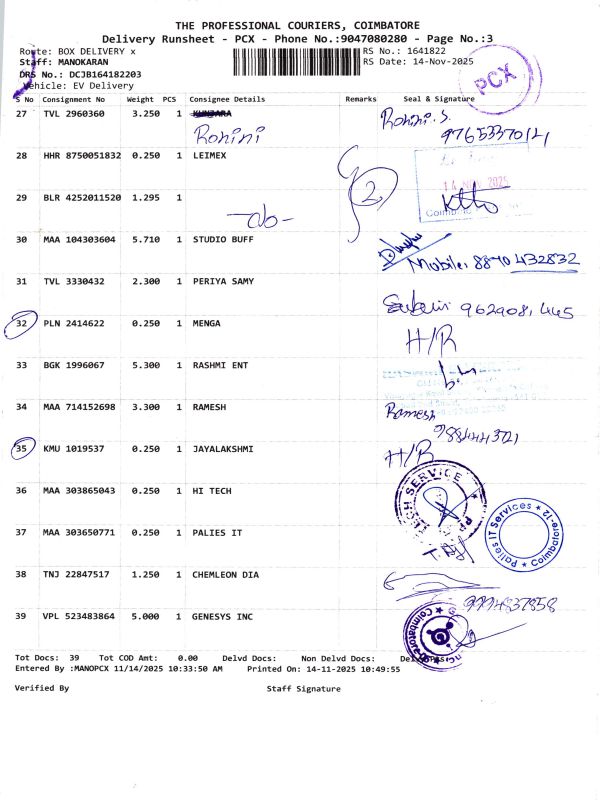 THE PROFESSIONAL COURIERS, COIMBATORE
Delivery Runsheet - PCX - Phone No.:9047080280 - Page No.:3
Route: BOX DELIVERY x RS No.: 1641822
Staff: MANOKARAN RS Date: 14-Nov-2025
DRS No.: DCJB164182203
Vehicle: EV Delivery
PCX
S No Consignment No Weight PCS Consignee Details Remarks Seal & Signature
27 TVL 2960360 3.250 1 Rohini.S.
Rohini
28 HHR 8750051832 0.250 1 LEIMEX
2
14 NOV 2025
29 BLR 4252011520 1.295 1
-do-
30 MAA 104303604 5.710 1 STUDIO BUFF
Mobile: 8870432832
31 TVL 3330432 2.300 1 PERIYA SAMY
32 PLN 2414622 0.250 1 MENGA H/R
33 BGK 1996067 5.300 1 RASHMI ENT
34 MAA 714152698 3.300 1 RAMESH Ramesh
35 KMU 1019537 0.250 1 JAYALAKSHMI H/R
36 MAA 303865043 0.250 1 HI TECH
TECH SERVICE
37 MAA 303650771 0.250 1 PALIES IT
Palies IT Services * Coimbatore-12 *
38 TNJ 22847517 1.250 1 CHEMLEON DIA
9994837858
39 VPL 523483864 5.000 1 GENESYS INC
Coimbatore
Tot Docs: 39 Tot COD Amt: 0.00 Delvd Docs: Non Delvd Docs:
Entered By :MANOPCX 11/14/2025 10:33:50 AM Printed On: 14-11-2025 10:49:55
Verified By Staff Signature